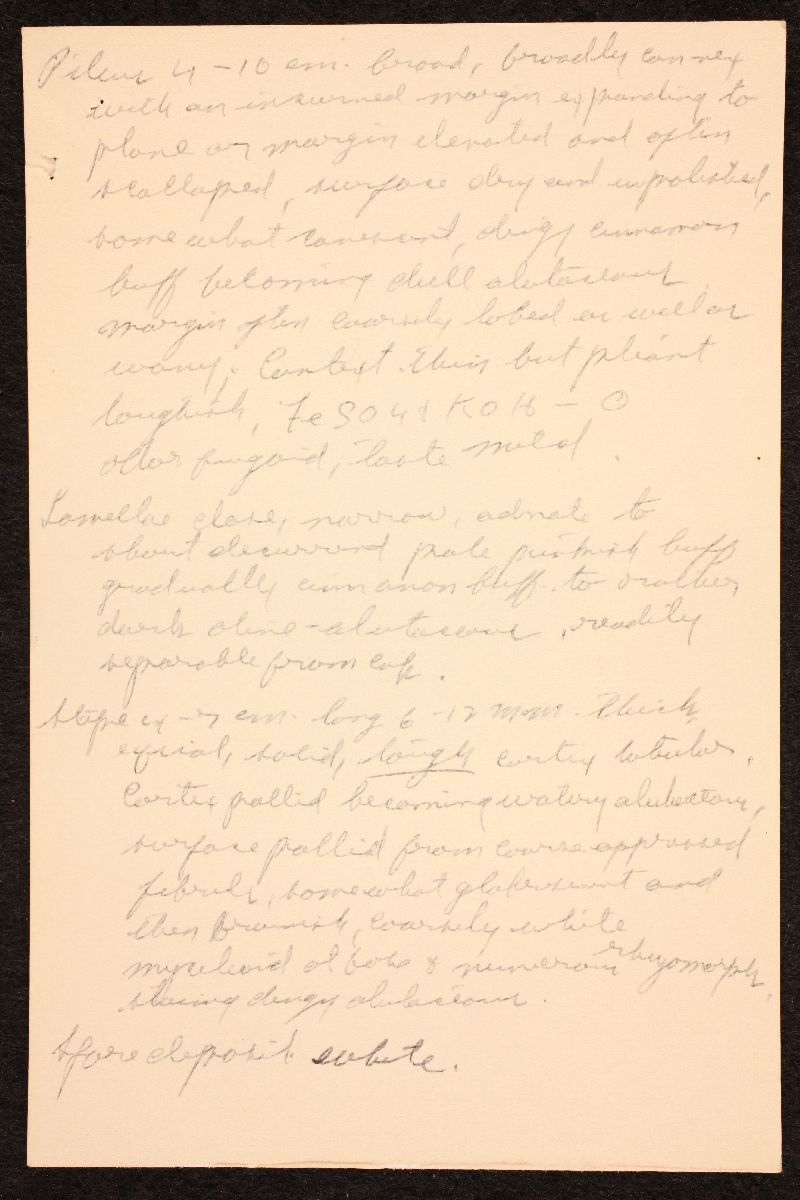 Pileus 4-10 cm. broad, broadly convex
with an incurved margin expanding to
plane or margin elevated and often
scalloped, surface dry and unpolished,
somewhat canescent, dingy cinnamon
buff becoming dull alutaceous
margin often coarsely lobed as well as
wavy; Context thin but pliant
toughish, FeSO4 & KOH - O
odor fungoid, taste mild.
Lamellae close, narrow, adnate to
about decurrent pale pinkish buff
gradually cinnamon buff to rather
dark olive-alutaceous, readily
separable from cap.
Stipe 4-7 cm. long 6-12 mm. thick,
equal, solid, tough cortex tubular,
Cortex pallid becoming watery alutaceous,
surface pallid from coarse appressed
fibrils, somewhat glabrescent and
then brownish, coarsely white
myceloid at base & numerous rhizomorphs,
staining dingy alutaceous.
Spore deposit white.